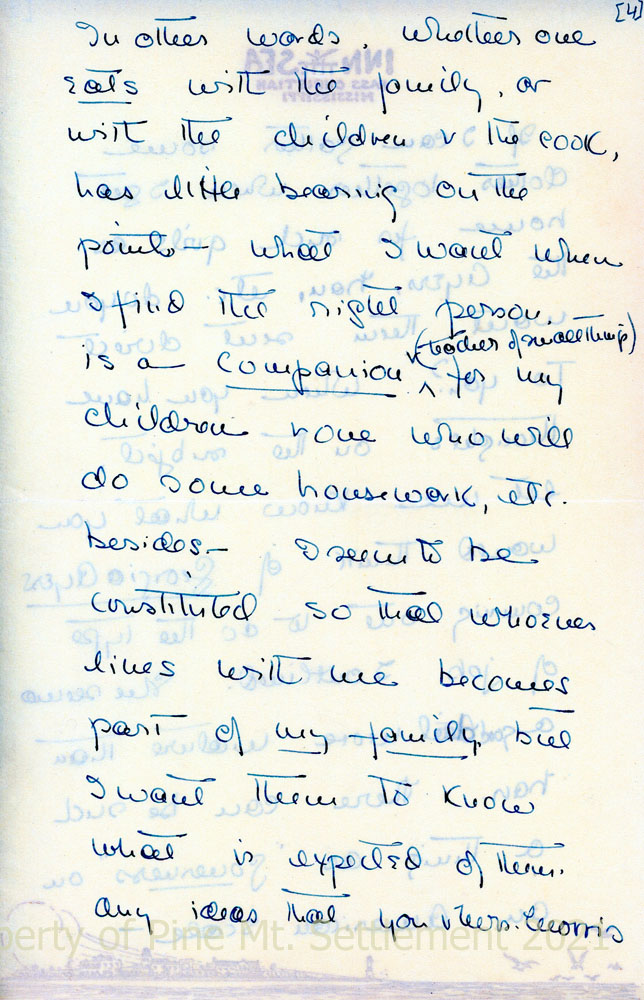 [4]
In other words, whether one
eats with the family, or
with the children & the cook,
has little bearing on the
point - what I want when
I find the right person
is a companion (teacher of small things) for my
children & one who will
do some housework, etc.
besides - I seem to be
constituted so that whoever
lives with me becomes
part of my family, but
I want them to know
what is expected of them.
Any ideas that you & Mrs. Morris
Property of Pine Mt. Settlement 2021